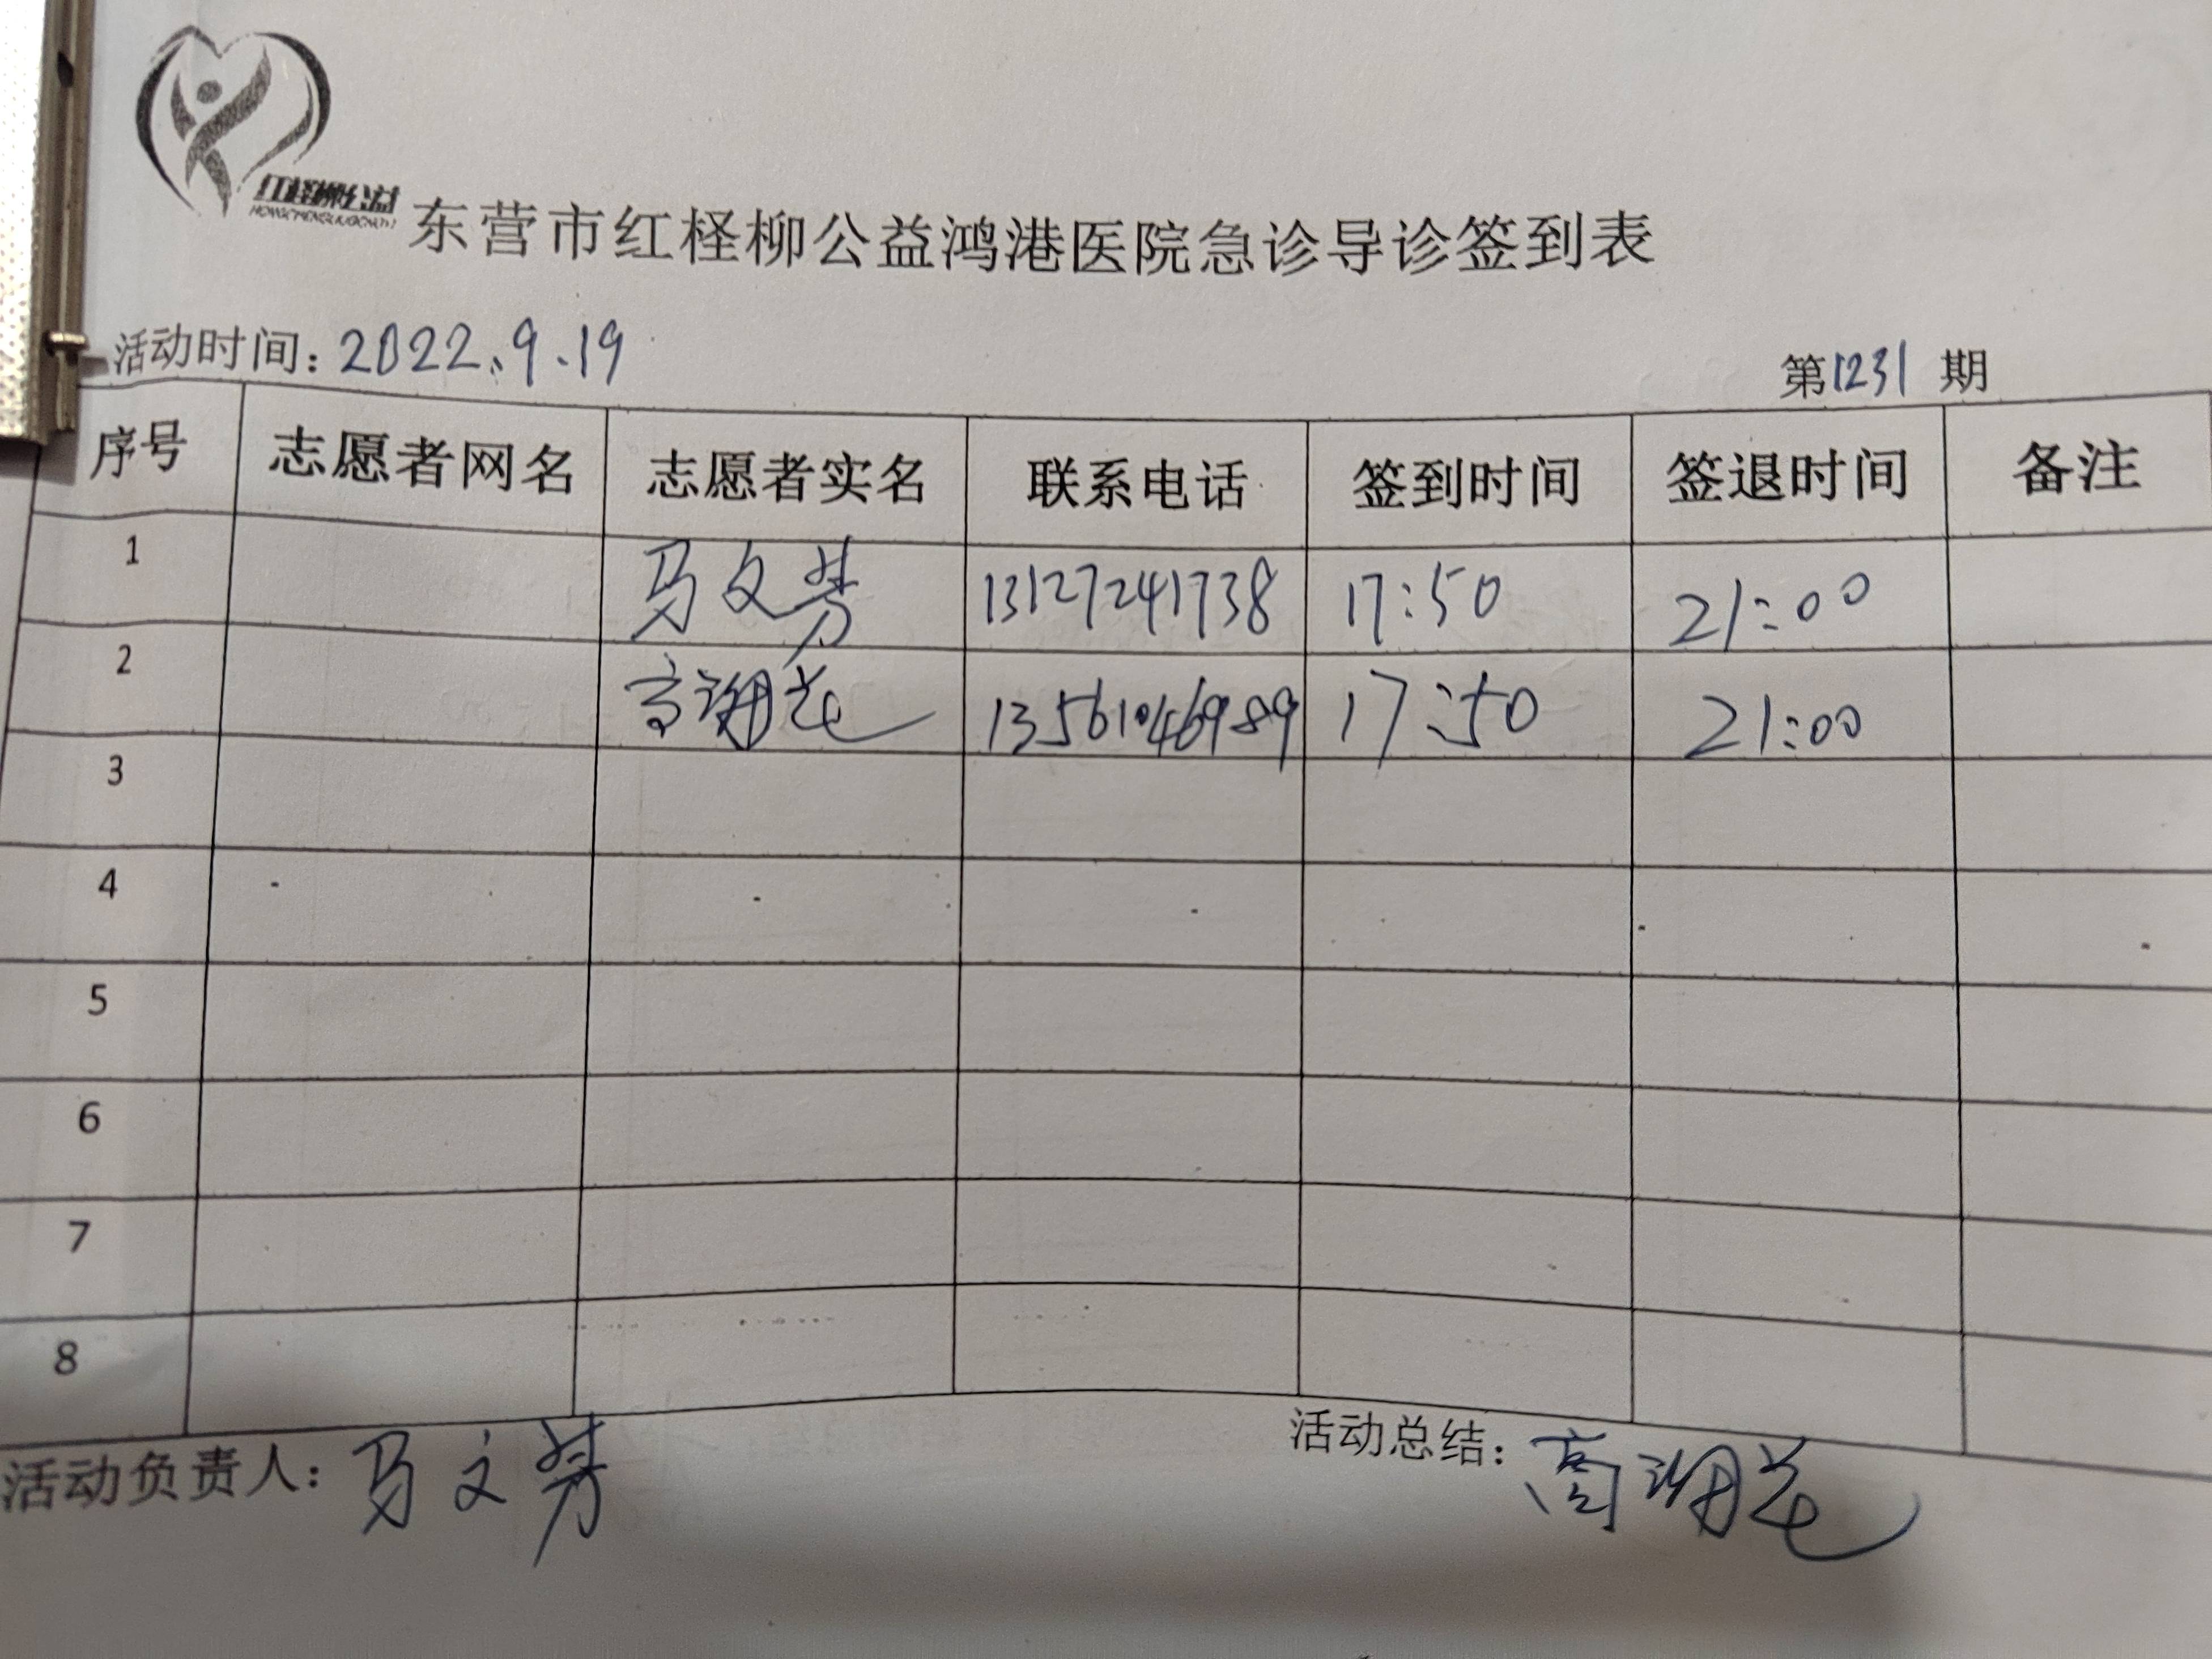 红柽柳公益
东营市红柽柳公益鸿港医院急诊导诊签到表
活动时间：2022.9.19
第1231期
序号 志愿者网名 志愿者实名 联系电话 签到时间 签退时间 备注
1 马文芳 13127241738 17:50 21:00
2 高翊花 13561046989 17:50 21:00
3
4
5
6
7
8
活动负责人：马文芳
活动总结：高翊花